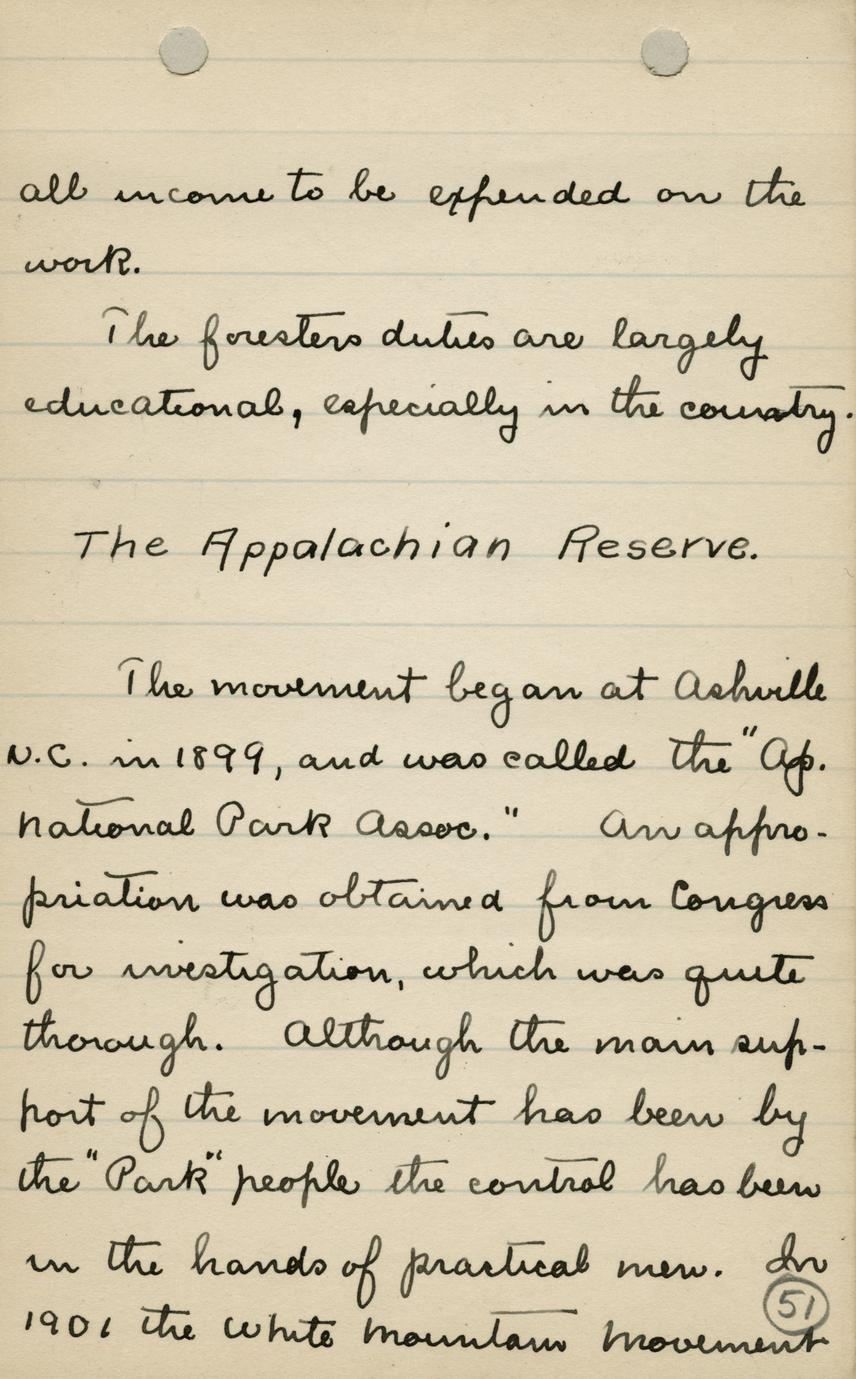 all income to be expended on the
work.
The foresters duties are largely
educational, especially in the country.
The Appalachian Reserve.
The movement began at Ashville
N.C. in 1899, and was called the "Ap.
National Park Assoc." An appro-
priation was obtained from Congress
for investigation, which was quite
thorough. Although the main sup-
port of the movement has been by
the "Park" people the control has been
in the hands of practical men. In
1901 the White Mountain Movement
51